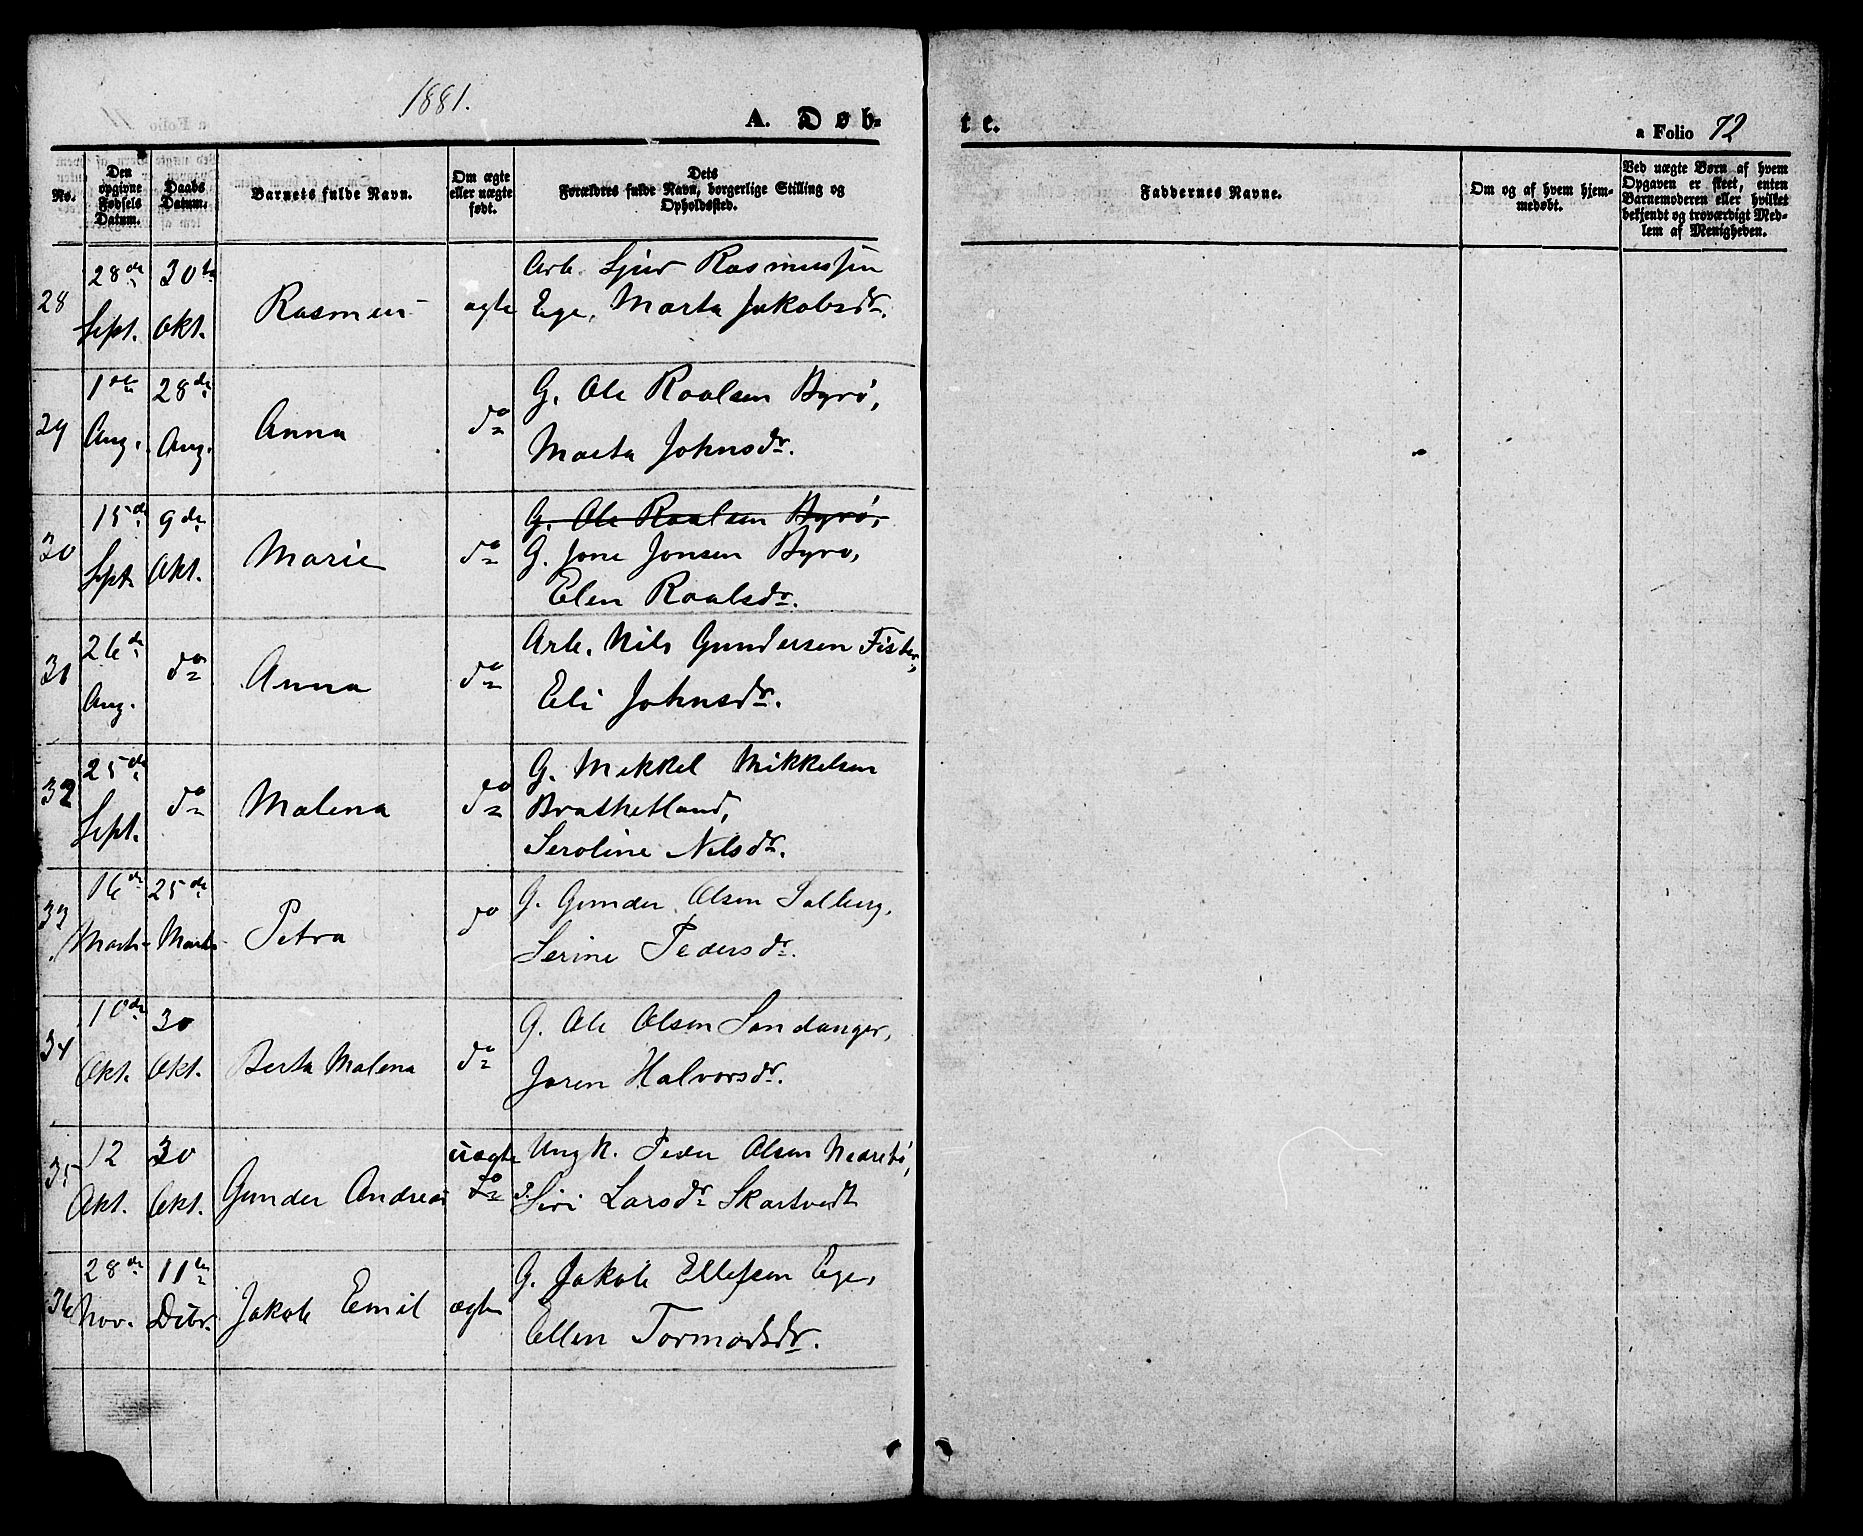 1881.
A. Døb-
te.
a Folio 72
No.
Den opgivne Fødsels Datum.
Daabs Datum.
Barnets fulde Navn.
Om ægte eller uægte født.
Dets Forældres fulde Navn, borgerlige Stilling og Opholdssted.
Faddernes Navne.
Om og af hvem hjemmedøbt.
Ved uægte Børn af hvem Opgaven er skeet, enten Barnemoderen eller hvilket bekjendt og troværdigt Medlem af Menigheden.
28 28de Sept. 30te Okt. Rasmus ægte Arb. Sjur Rasmussen
Ege, Marta Jakobsdr.
29 1ste Aug. 28de Aug. Anna do G. Ole Roalsen Byrø,
Marta Johnsdr.
30 15de Sept. 9de Okt. Marie do G. Ole Roalsen Byrø,
G. Jone Jonsen Byrø,
Elen Roalsdr.
31 26de Aug. do Anna do Arb. Nils Gundersen Fister,
Eli Johnsdr.
32 25de Sept. do Malena do G. Mikkel Mikkelsen
Brasketland,
Seroline Nilsdr.
33 16de Marts 25de Marts Petra do G. Gunder Olsen Solberg,
Serine Pedersdr.
34 10de Okt. 30 Okt. Berta Malena do G. Ole Olsen Sandanger,
Joren Halvorsdr.
35 12 Okt. 30 Okt. Gunder Andreas uægte do Ungk. Peder Olsen Nedrebø,
P. Siri Larsdr Skartvedt
36 28de Nov. 11te Debr. Jakob Emil ægte G. Jakob Ellefsen Ege,
Ellen Tormodsdr.